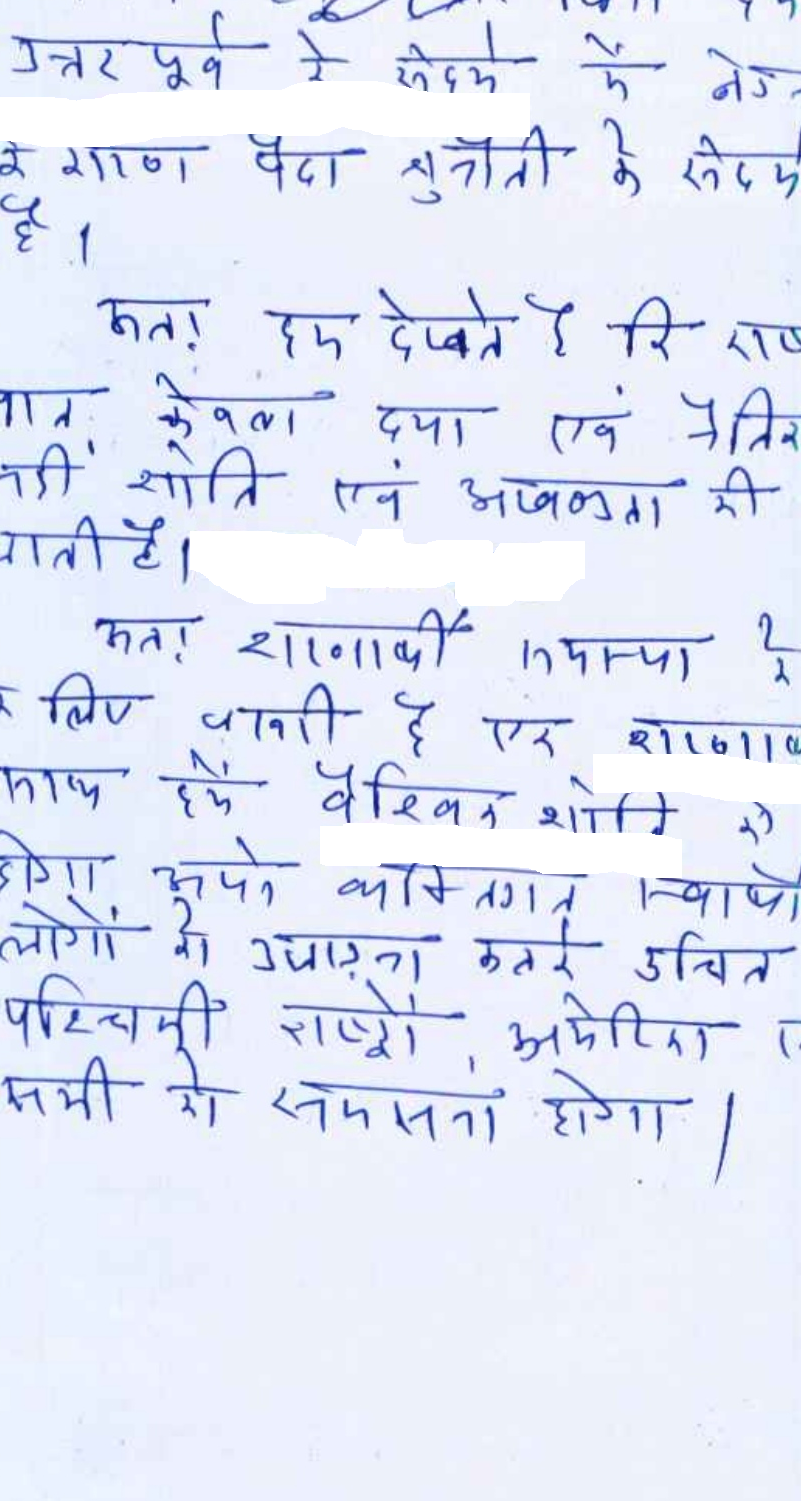 उत्तर पूर्व के संदर्भ में
कारण पैदा चुनौती के संदर्भ
है।
अतः हम देखते है कि
केवल दया एवं नैतिक
नहीं शांति एवं अखण्डता की
जाती है।
अतः शरणार्थी समस्या के
के लिए काफी है पर
हमें वैश्विक शांति को
होगा अपने व्यक्तिगत स्वार्थो
लोगों को उजाड़ना कतई उचित
पश्चिमी राष्ट्रों, अमेरिका
सभी को समझना होगा।